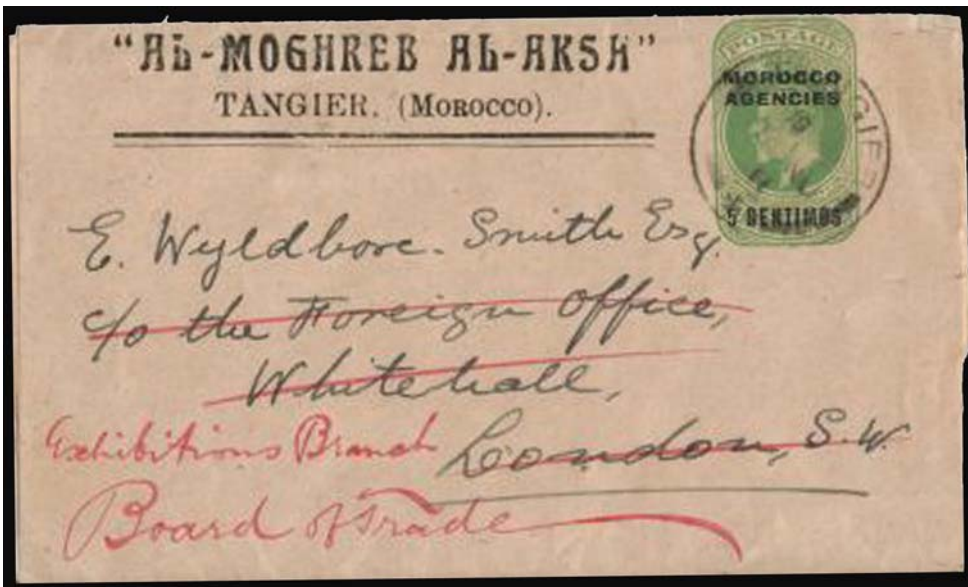 "AL-MOGHREB AL-AKSA"
TANGIER. (MOROCCO).
POSTAGE
MOROCCO
AGENCIES
TANGIER
5 CENTIMOS
E. Wyldbore-Smith Esq.
c/o the Foreign Office,
Whitehall,
London, S.W.
Exhibitions Branch
Board of Trade